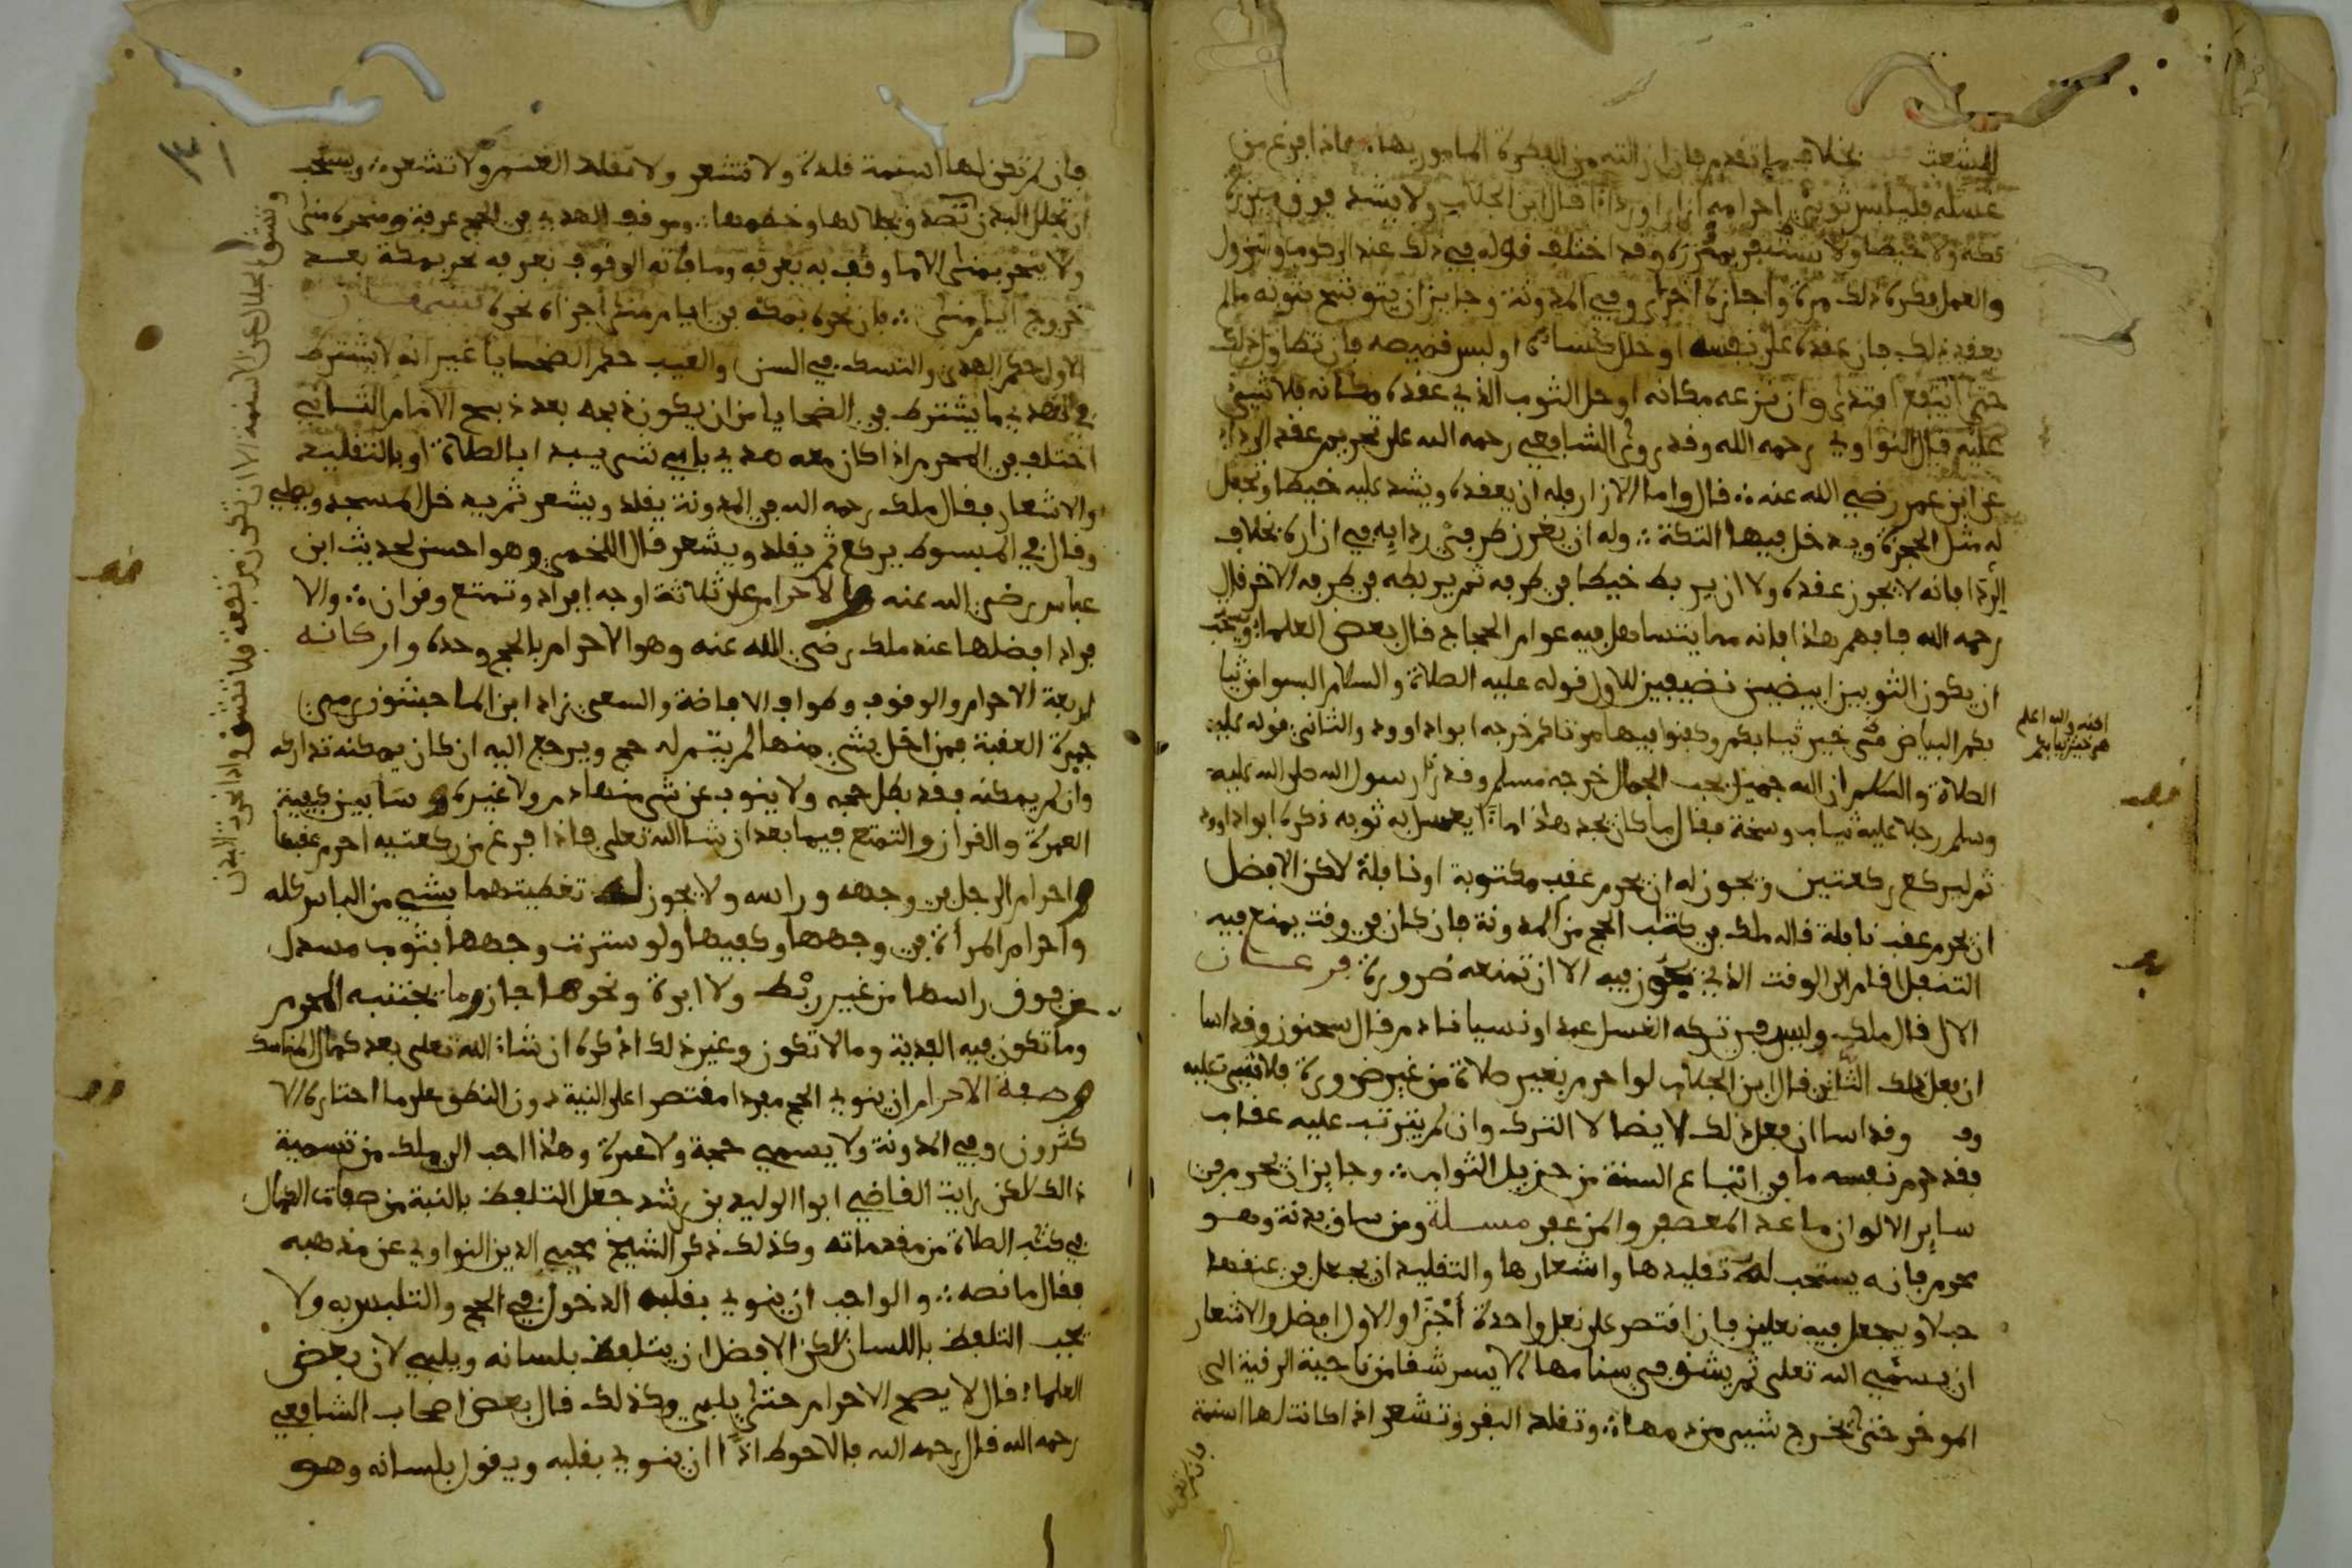 المشعث بخلاف ما تقدم فان ازالته من الفطرة المامور بها فاذا فرغ من
غسله فليلبس ثوبي احرامه ازارا ورداء قال ابن الجلاب ولا يشد فوق ميزره
تكة ولا خيطا ولا يستثفر بميزره وقد اختلف قوله في ذلك عند الركوب والنزول
والعمل فكره ذلك مرة واجازه اخرى وفي المدونة وجايز ان يتوشح بثوبه ما لم
يعقد ذلك فان عقده على نفسه او خلل كساءه او لبس قميصه فان تطاول ذلك
حتى انتفع افتدى وان نزعه مكانه او حل الثوب الذي عقده مكانه فلا شيء
عليه قال النواوي رحمه الله وقد روى الشافعي رحمه الله على تحريم عقد الرداء
عن ابن عمر رضي الله عنه قال واما الازار فله ان يعقده ويشد عليه خيطا ويجعل
له مثل الحجزة ويدخل فيها التكة وله ان يغرز طرفي ردايه في ازاره بخلاف
الرداء فانه لا يجوز عقده ولا ان يربط خيطا في طرفه ثم يربطه في طرفه الاخر قال
رحمه الله فافهم هذا فانه مما يتساهل فيه عوام الحجاج قال بعض العلماء ويستحب
ان يكون الثوبين ابيضين نضيفين للاول قوله عليه الصلاة والسلام البسوا من ثيا
بكم البياض فهي خير ثيابكم وكفنوا فيها موتاكم خرجه ابوا داوود والثاني قوله عليه
الصلاة والسلام ان الله جميل يحب الجمال خرجه مسلم وقد رءا رسول الله صلى الله عليه
وسلم رجلا عليه ثياب وسخة فقال ما كان يجد هذا ماء يغسل به ثوبه ذكره ابوا داوود
ثم ليركع ركعتين ويجوز له ان يحرم عقب مكتوبة او نافلة لاكن الافضل
ان يحرم عقب نافلة قاله ملك في كتاب الحج من المدونة فان كان في وقت يمنع فيه
التنفل اقام الى الوقت الذي يجوز فيه الا ان تمنعه ضرورة فرعان
الاول قال ملك وليس في تركه الغسل عمدا او نسيانا دم قال سحنون وقد اسا
ان فعل ذلك الثاني قال ابن الجلاب لو احرم بغير صلاة من غير ضرورة فلا شيء عليه
وقد اسا ان فعل ذلك لايضا لا الترك وان لم يترتب عليه عقاب
فقد حرم نفسه ما في اتباع السنة من جزيل الثواب وجايز ان يحرم في
ساير الالوان ما عدا المعصفر والمزعفر مسلة ومن ساق بدنة وهو
محرم فانه يستحب له تقليدها واشعارها والتقليد ان يجعل في عنقها
حبلا ويجعل فيه نعلين فان اقتصر على نعل واحدة أجزا والاول افضل والاشعار
ان يسمي الله تعلى ثم يشق في سنامها الايسر شقا من ناحية الرقبة الى
الموخر حتى يخرج شيء من دمها وتقلد البقر وتشعر اذا كانت لها اسنمة
فان لم تكن
والله اعلم
من خير ثيابكم
فان لم تكن لها اسنمة قلدت ولا تشعر ولا تقلد الغنم ولا تشعر ويستحب
ان تجلل البدن وجلالها وخطمها وموقف الهدي في الحج عرفة ومنحره منى
ولا ينحر بمنى الا ما وقف به بعرفة وما فاته الوقوف بعرفة نحر بمكة بعد
خروج ايام منى فان نحره بمكة في ايام منى اجزاه نحره تنبيهان
الاول حكم الهدي والنسك في السن والعيب حكم الضحايا غير انه لا يشترط
في الهدي ما يشترط في الضحايا من ان يكون ذبحه بعد ذبح الامام الثاني
اختلف في المحرم اذا كان معه هدي باي شيء يبدا ابالصلاة او بالتقليد
والاشعار فقال ملك رحمه الله في المدونة يقلد ويشعر ثم يدخل المسجد ويصلي
وقال في المبسوط يركع ثم يقلد ويشعر قال اللخمي وهو احسن لحديث ابن
عباس رضي الله عنه والاحرام على ثلاثة اوجه إفراد وتمتع وقران والا
فراد افضلها عند ملك رضي الله عنه وهو الاحرام بالحج وحده واركانه
اربعة الاحرام والوقوف وطواف الافاضة والسعي زاد ابن الماجشون رمي
جمرة العقبة فمن اخل بشيء منها لم يتم له حج ويرجع اليه ان كان يمكنه تداركه
وان لم يمكنه فقد بطل حجه ولا ينوب عن شيء منها دم ولا غيره وسابين كيفية
العمرة والقران والتمتع فيما بعد ان شا الله تعلى فاذا فرغ من ركعتيه احرم عقبها
واحرام الرجل في وجهه وراسه ولا يجوز له تغطيتهما بشيء من اللباس كله
واحرام المرأة في وجهها وكفيها ولو سترت وجهها بثوب مسدل
من فوق راسها من غير ربط ولا ابرة ونحوها جاز وما يجتنبه المحرم
وما تكون فيه الفدية وما لا تكون وغير ذلك اذكره ان شاء الله تعلى بعد كمال المناسك
وصفة الاحرام ان ينوي الحج مفردا مقتصرا على النية دون النطق على ما اختاره الا
كثرون وفي المدونة ولا يسمي حجة ولا عمرة وهذا احب الى ملك من تسمية
ذالك لاكن رايت القاضي ابوا الوليد بن رشد جعل التلفظ بالنية من صفات الكمال
في كتاب الصلاة من مقدماته وكذلك ذكر الشيخ محيي الدين النواوي عن مذهبه
فقال ما نصه والواجب ان ينوي بقلبه الدخول في الحج والتلبس به ولا
يجب التلفظ باللسان لاكن الافضل ان يتلفظ بلسانه ويلبي لان بعض
العلماء قال لا يصح الاحرام حتى يلبي وكذلك قال بعض اصحاب الشافعي
رحمه الله قال رحمه الله فالاحوط اذًا ان ينوي بقلبه ويقول بلسانه وهو
وتشق الجلال عن الاسنمة الا ان تكون مرتفعة فلا تشق